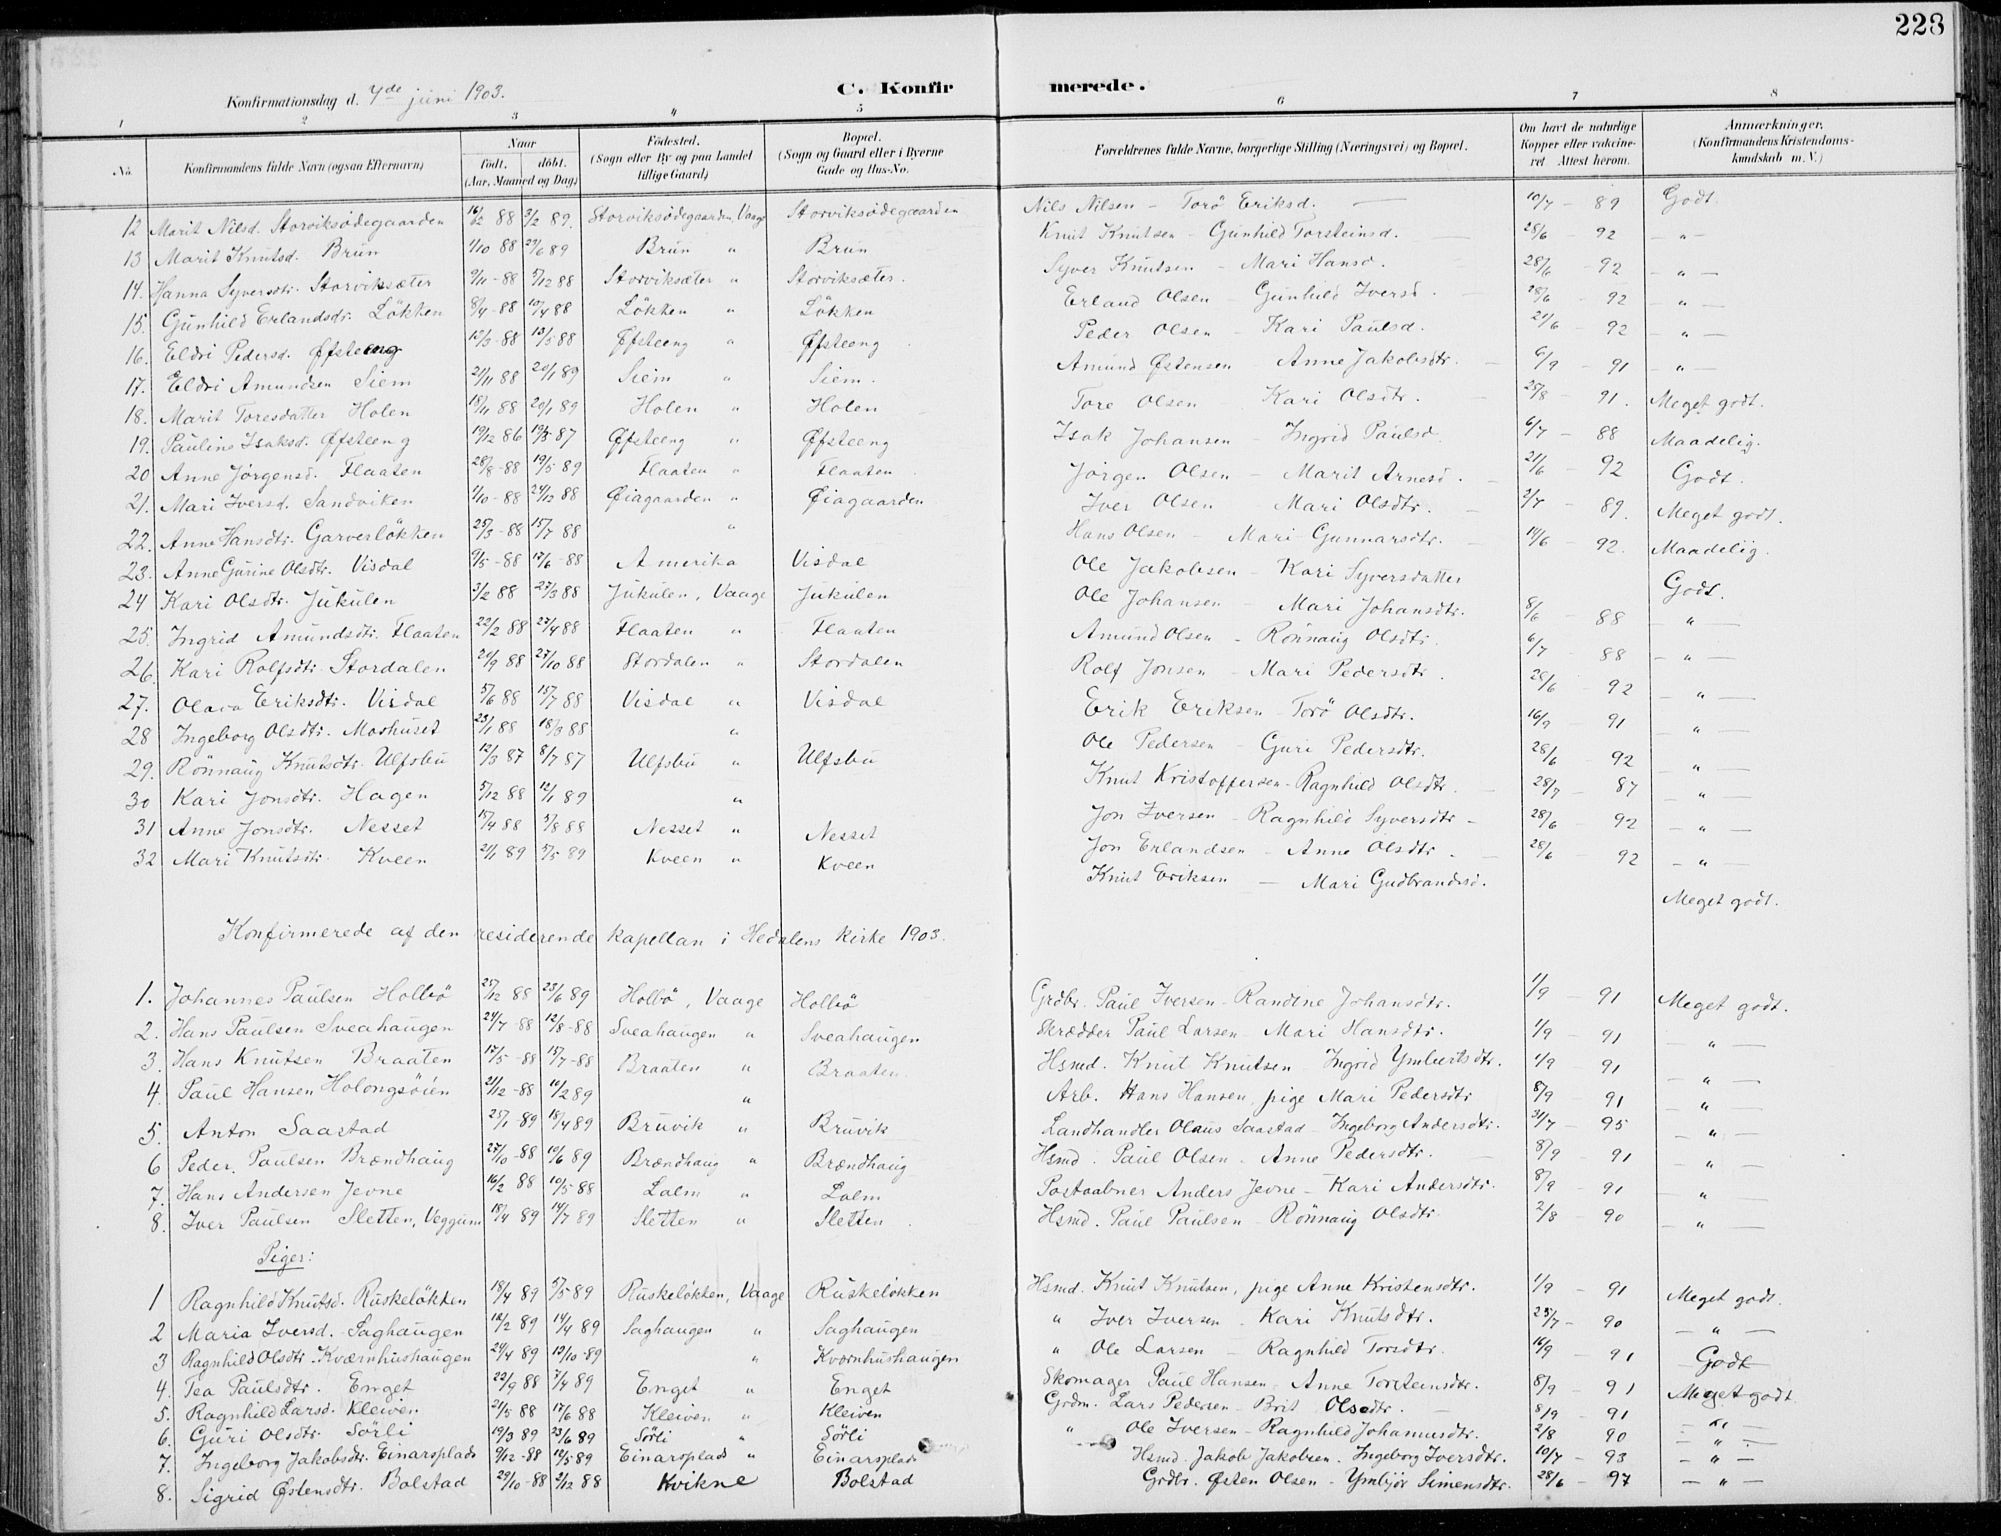 228
Konfirmationsdag d. 7de juni 1903. C. Konfirmerede.
1 2 3 4 5 6 7 8
No. Konfirmandens fulde Navn (ogsaa Efternavn) Naar født, døbt. (Aar, Maaned og Dag) Fødested. (Sogn eller By og paa Landet tillige Gaard) Bopæl. (Sogn og Gaard eller i Byerne Gade og Hus-No. Forældrenes fulde Navne, borgerlige Stilling (Næringsvei) og Bopæl. Om havt de naturlige Kopper eller vaccineret. Attest herom. Anmærkninger. (Konfirmandens Kristendomskundskab m. V.)
12 Marit Nilsd. Storviksødegaarden 16/12 88 3/2 89. Storviksødegaarden, Vaage Storviksødegaarden Nils Nilsen – Torö Eriksd. 10/7 – 89 Godt.
13 Marit Knutsd. Brun 1/10 88 27/6 89 Brun " Brun Knut Knutsen – Gunhild Torsteinsd. 28/6 – 92 – " –
14. Hanna Syversdtr. Storviksæter 9/11 – 88 5/12 88 Storviksæter " Storviksæter. Syver Knutsen – Mari Hansd. 28/6 – 92 – " –
15. Gunhild Erlandsdr. Lökken 8/4 – 88 10/4 88 Lökken " Lökken Erland Olsen – Gunhild Iversd. 28/6 – 92 – " –
16. Eldri Pedersd. Øfsteeng 12/3 – 88 13/5 88 Øfsteeng " Øfsteeng Peder Olsen – Kari Paulsd. 21/6 – 92 – " –
17. Eldri Amundsen Siem 21/11 88 20/1 89 Siem " Siem. Amund Østensen Anne Jakobsdtr. 6/9 – 91 – " –
18. Marit Toresdatter Holen 18/11 88 20/1 89 Holen " Holen Tore Olsen – Kari Olsdtr. 25/8 – 91. Meget godt.
19. Pauline Isaksd. Øfsteeng 19/12 86 19/3 87 Øfsteeng " Øfsteeng Isak Johansen – Ingrid Paulsd. 6/7 – 88 Maadelig.
20 Anne Jörgensd. Flaaten 28/8 – 88 19/5 89 Flaaten " Flaaten Jörgen Olsen – Marit Arnesd. 21/6 – 92 Godt.
21. Mari Iversd. Sandviken 1/10 – 88 24/12 88 Øiagaarden " Øiagaarden Iver Olsen – Mari Olsdtr. 2/7 – 89. Meget godt.
22. Anne Hansdtr. Garverlökken 25/3 – 88 15/7 88 " Hans Olsen – Mari Gunnarsdtr. 14/6 – 92. Maadelig.
23. Anne Gurine Olsdtr. Visdal 9/5 – 88 17/6 – 88 Amerika Visdal Ole Jakobsen – Kari Syversdatter Godt.
24 Kari Olsdtr. Jukulen 3/2 88 27/3 88 Jukulen, Vaage Jukulen Ole Johansen – Mari Johansdtr. 8/6 – 88 – " –
25. Ingrid Amundsdtr. Flaaten 22/2 88 22/4 88 Flaaten " Flaaten Amund Olsen – Rönnaug Olsdtr. 6/7 – 88 – " –
26. Kari Rolfsdtr. Stordalen 20/9 88 27/10 88 Stordalen " Stordalen Rolf Jonsen – Mari Pedersdtr. 28/6 – 92 – " –
27. Olava Eriksdtr. Visdal 5/6 88 15/7 88 Visdal " Visdal Erik Eriksen – Torö Olsdtr. 16/9 – 91 – " –
28 Ingeborg Olsdtr. Moshuset 23/1 88 18/3 88 " Ole Pedersen – Guri Pedersdtr. 28/6 – 92 – " –
29. Rönnaug Knutsdtr. Ulfsbu 12/3 87 8/7 87 Ulfsbu " Ulfsbu Knut Kristoffersen – Ragnhild Olsdtr. 28/7 – 87 – " –
30 Kari Jonsdtr. Hagen 5/12 88 12/1 89 " Jon Iversen – Ragnhild Syversdtr – 28/6 – 92 – " –
31 Anne Jonsdtr. Nesset 15/4 88 5/8 88 Nesset " Nesset Jon Erlandsen – Anne Olsdtr. 28/6 – 92 – " –
32 Mari Knutsdtr. Kveen 2/1 89 5/5 89 Kveen " Kveen Knut Eriksen – Mari Gudbrandsd. Meget godt.
Konfirmerede af den residerende kapellan i Hedalens kirke 1903.
1. Johannes Paulsen Holbö 25/12 88 23/6 89 Holbö, Vaage Holbö Grdbr. Paul Iversen – Randine Johansdtr. 1/9 – 91 Meget godt.
2. Hans Paulsen Sveahaugen 24/7 – 88 12/8 – 88 Sveahaugen " Sveahaugen Skrædder Paul Larsen – Mari Hansdtr. 1/9 – 91 – " –
3. Hans Knutsen Braaten 17/5 – 88 15/7 – 88 Braaten " Braaten. Hsmd. Knut Knutsen – Ingrid Ymbertsdtr. 1/9 – 91 – " –
4. Paul Hansen Holongsöien 21/12 – 88 10/2 89 " Arb. Hans Hansen, pige Mari Pedersdtr 8/9 – 91 – " –
5. Anton Saastad 25/1 – 89 18/4 89 Bruvik " Bruvik Landhandler Olaus Saastad – Ingeborg Andersdtr. 31/7 – 95 – " –
6 Peder Paulsen Brændhaug 27/10 – 88 10/6 89 Brændhaug " Brændhaug Hsmd. Paul Olsen. Anne Pedersdtr. 8/9 – 91 – " –
7. Hans Andersen Jevne 16/2 88 10/5 88 Lalm " Lalm Postaabner Anders Jevne – Kari Andersdtr. 8/9 – 91 – " –
8. Iver Paulsen Sletten, Veggum 18/4 89 14/7 89 Sletten " Sletten Hsmd. Paul Paulsen – Rönnaug Olsdtr 2/8 – 90 – " –
Piger:
1 Ragnhild Knutsd. Ruskelökken 18/4 89 5/5 89 Ruskelökken, Vaage Ruskelökken Hsmd. Knut Knutsen, pige Anne Kristensdtr. 1/9 – 91 Meget godt.
2 Maria Iversd. Saghaugen 12/2 89 14/4 89 Saghaugen " Saghaugen " Iver Iversen. Kari Knutsdtr. 25/7 – 90 – " –
3 Ragnhild Olsdtr. Kværnhushaugen 24/4 89 13/10 – 89 " Kværnhushaugen " Ole Larsen – Ragnhild Torsdtr. 16/9 – 91 Godt
4. Tea Paulsdtr. Enget 22/9 88 7/4 89 Enget " Enget Skomager Paul Hansen – Anne Torsteinsdtr. 8/9 – 91 Meget godt.
5. Ragnhild Larsd. Kleiven 21/5 88 17/6 88 Kleiven " Kleiven Grdm. Lars Pedersen – Brit Olsdtr. 8/9 – 91 – " –
6. Guri Olsdtr Sörli 19/3 89 23/6 89 Sörli " Sörli " Ole Iversen – Ragnhild Johannesdtr. 2/8 90 – " –
7. Ingeborg Jakobsdtr. Einarsplads 9/12 – 88 12/5 89 Einarsplads " Einarsplads Hsmd. Jakob Jakobsen. Ingeborg Iversdtr. 10/7 – 93 – " –
8. Sigrid Østensdtr. Bolstad 29/10 – 88 2/12 88 Kvikne Bolstad Grdbr. Østen Olsen – Ymbjör Simensdtr. 28/6 – 97 – " –